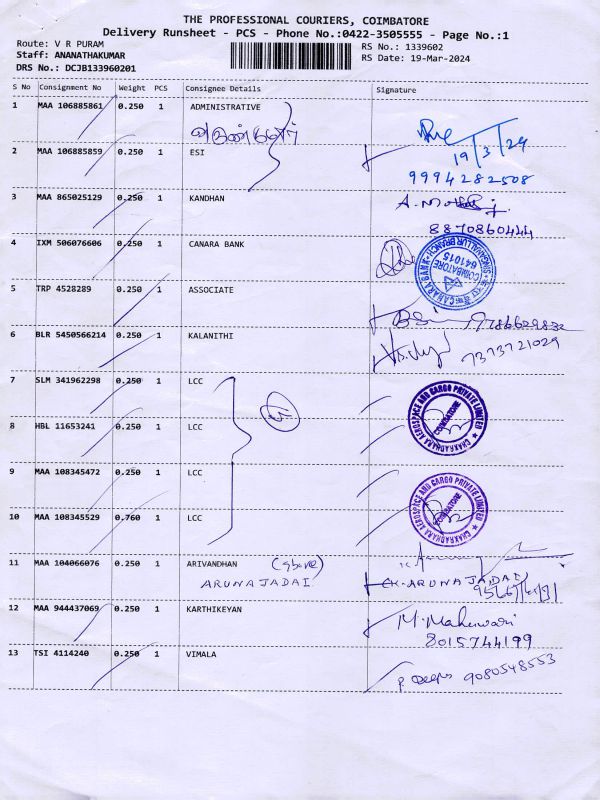 THE PROFESSIONAL COURIERS, COIMBATORE
Delivery Runsheet - PCS - Phone No.:0422-3505555 - Page No.:1
Route: V R PURAM
Staff: ANANATHAKUMAR
DRS No.: DCJB133960201
RS No.: 1339602
RS Date: 19-Mar-2024
S No Consignment No Weight PCS Consignee Details Signature
1 MAA 106885861 0.250 1 ADMINISTRATIVE
19/3/24
2 MAA 106885859 0.250 1 ESI
9994282508
3 MAA 865025129 0.250 1 KANDHAN
8870860444
4 IXM 506076606 0.250 1 CANARA BANK
SINGANALLUR BRANCH
COIMBATORE
641015
CANARA BANK
5 TRP 4528289 0.250 1 ASSOCIATE
6 BLR 5450566214 0.250 1 KALANITHI
7373721029
7 SLM 341962298 0.250 1 LCC
8 HBL 11653241 0.250 1 LCC
CHAKRADHARA AEROSPACE AND CARGO PRIVATE LIMITED
COIMBATORE
9 MAA 108345472 0.250 1 LCC
10 MAA 108345529 0.760 1 LCC
CHAKRADHARA AEROSPACE AND CARGO PRIVATE LIMITED
COIMBATORE
11 MAA 104066076 0.250 1 ARIVANDHAN
ARUNAJADAI
K. ARUNAJADAI
12 MAA 944437069 0.250 1 KARTHIKEYAN
M. Maheswari
8015744199
13 TSI 4114240 0.250 1 VIMALA
9080548553